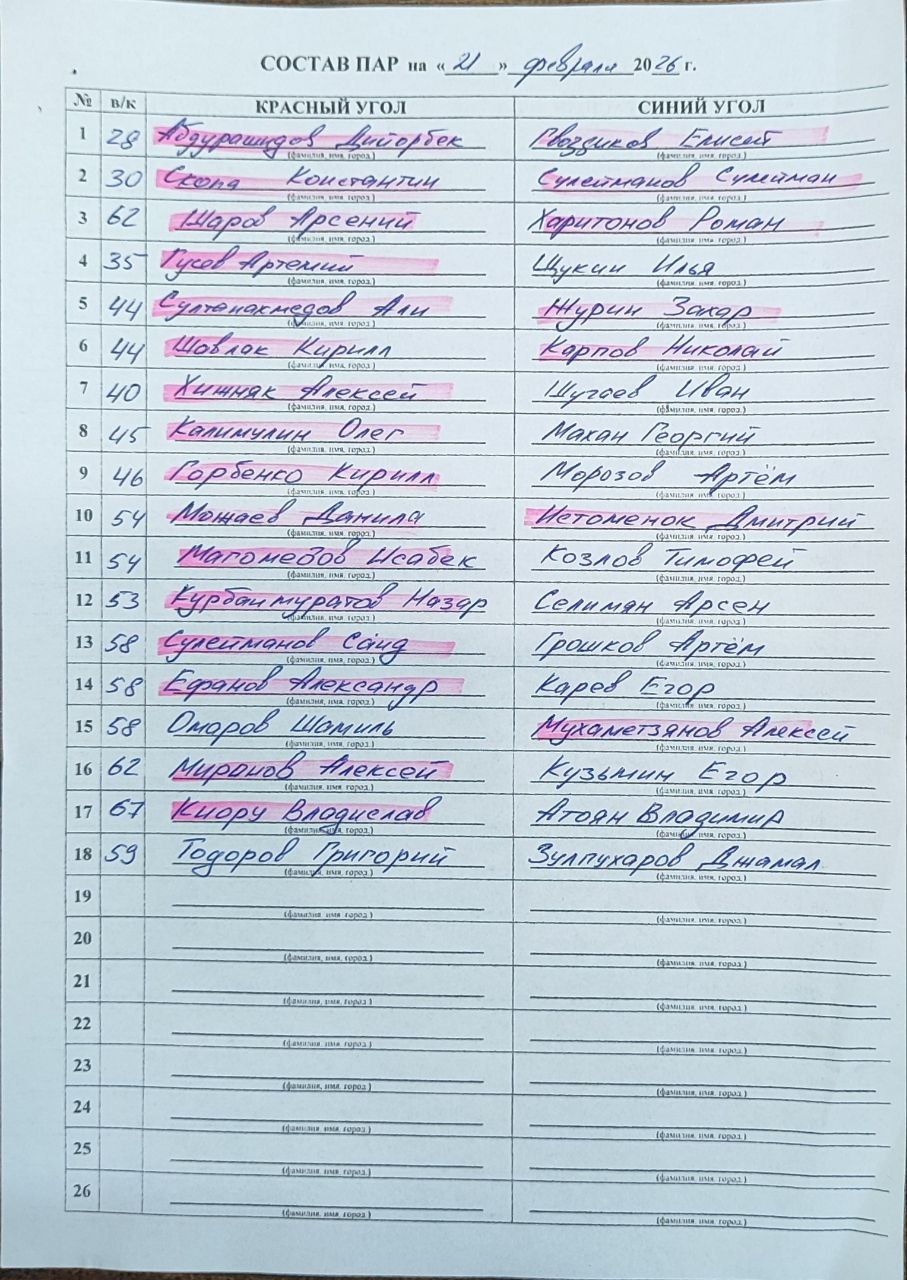 СОСТАВ ПАР на « 21 » февраля 2026 г.
№ в/к КРАСНЫЙ УГОЛ СИНИЙ УГОЛ
1 28 Абдурашидов Диёрбек Гвоздиков Елисей
(фамилия, имя, город) (фамилия, имя, город)
2 30 Скопа Константин Сулейманов Сулейман
(фамилия, имя, город) (фамилия, имя, город)
3 62 Шаров Арсений Харитонов Роман
(фамилия, имя, город) (фамилия, имя, город)
4 35 Гусев Артемий Щукин Илья
(фамилия, имя, город) (фамилия, имя, город)
5 44 Султанахмедов Али Журин Захар
(фамилия, имя, город) (фамилия, имя, город)
6 44 Шовлак Кирилл Карпов Николай
(фамилия, имя, город) (фамилия, имя, город)
7 40 Хижняк Алексей Шугаев Иван
(фамилия, имя, город) (фамилия, имя, город)
8 45 Калимулин Олег Махан Георгий
(фамилия, имя, город) (фамилия, имя, город)
9 46 Горбенко Кирилл Морозов Артём
(фамилия, имя, город) (фамилия, имя, город)
10 54 Можаев Данила Истоменок Дмитрий
(фамилия, имя, город) (фамилия, имя, город)
11 54 Магомедов Исабек Козлов Тимофей
(фамилия, имя, город) (фамилия, имя, город)
12 53 Курбанмуратов Назар Селимян Арсен
(фамилия, имя, город) (фамилия, имя, город)
13 58 Сулейманов Саид Грошков Артём
(фамилия, имя, город) (фамилия, имя, город)
14 58 Ефанов Александр Карев Егор
(фамилия, имя, город) (фамилия, имя, город)
15 58 Омаров Шамиль Мухаметзянов Алексей
(фамилия, имя, город) (фамилия, имя, город)
16 62 Миронов Алексей Кузьмин Егор
(фамилия, имя, город) (фамилия, имя, город)
17 67 Киору Владислав Атоян Владимир
(фамилия, имя, город) (фамилия, имя, город)
18 59 Тодоров Григорий Зулпухаров Джамал
(фамилия, имя, город) (фамилия, имя, город)
19
(фамилия, имя, город) (фамилия, имя, город)
20
(фамилия, имя, город) (фамилия, имя, город)
21
(фамилия, имя, город) (фамилия, имя, город)
22
(фамилия, имя, город) (фамилия, имя, город)
23
(фамилия, имя, город) (фамилия, имя, город)
24
(фамилия, имя, город) (фамилия, имя, город)
25
(фамилия, имя, город) (фамилия, имя, город)
26
(фамилия, имя, город) (фамилия, имя, город)